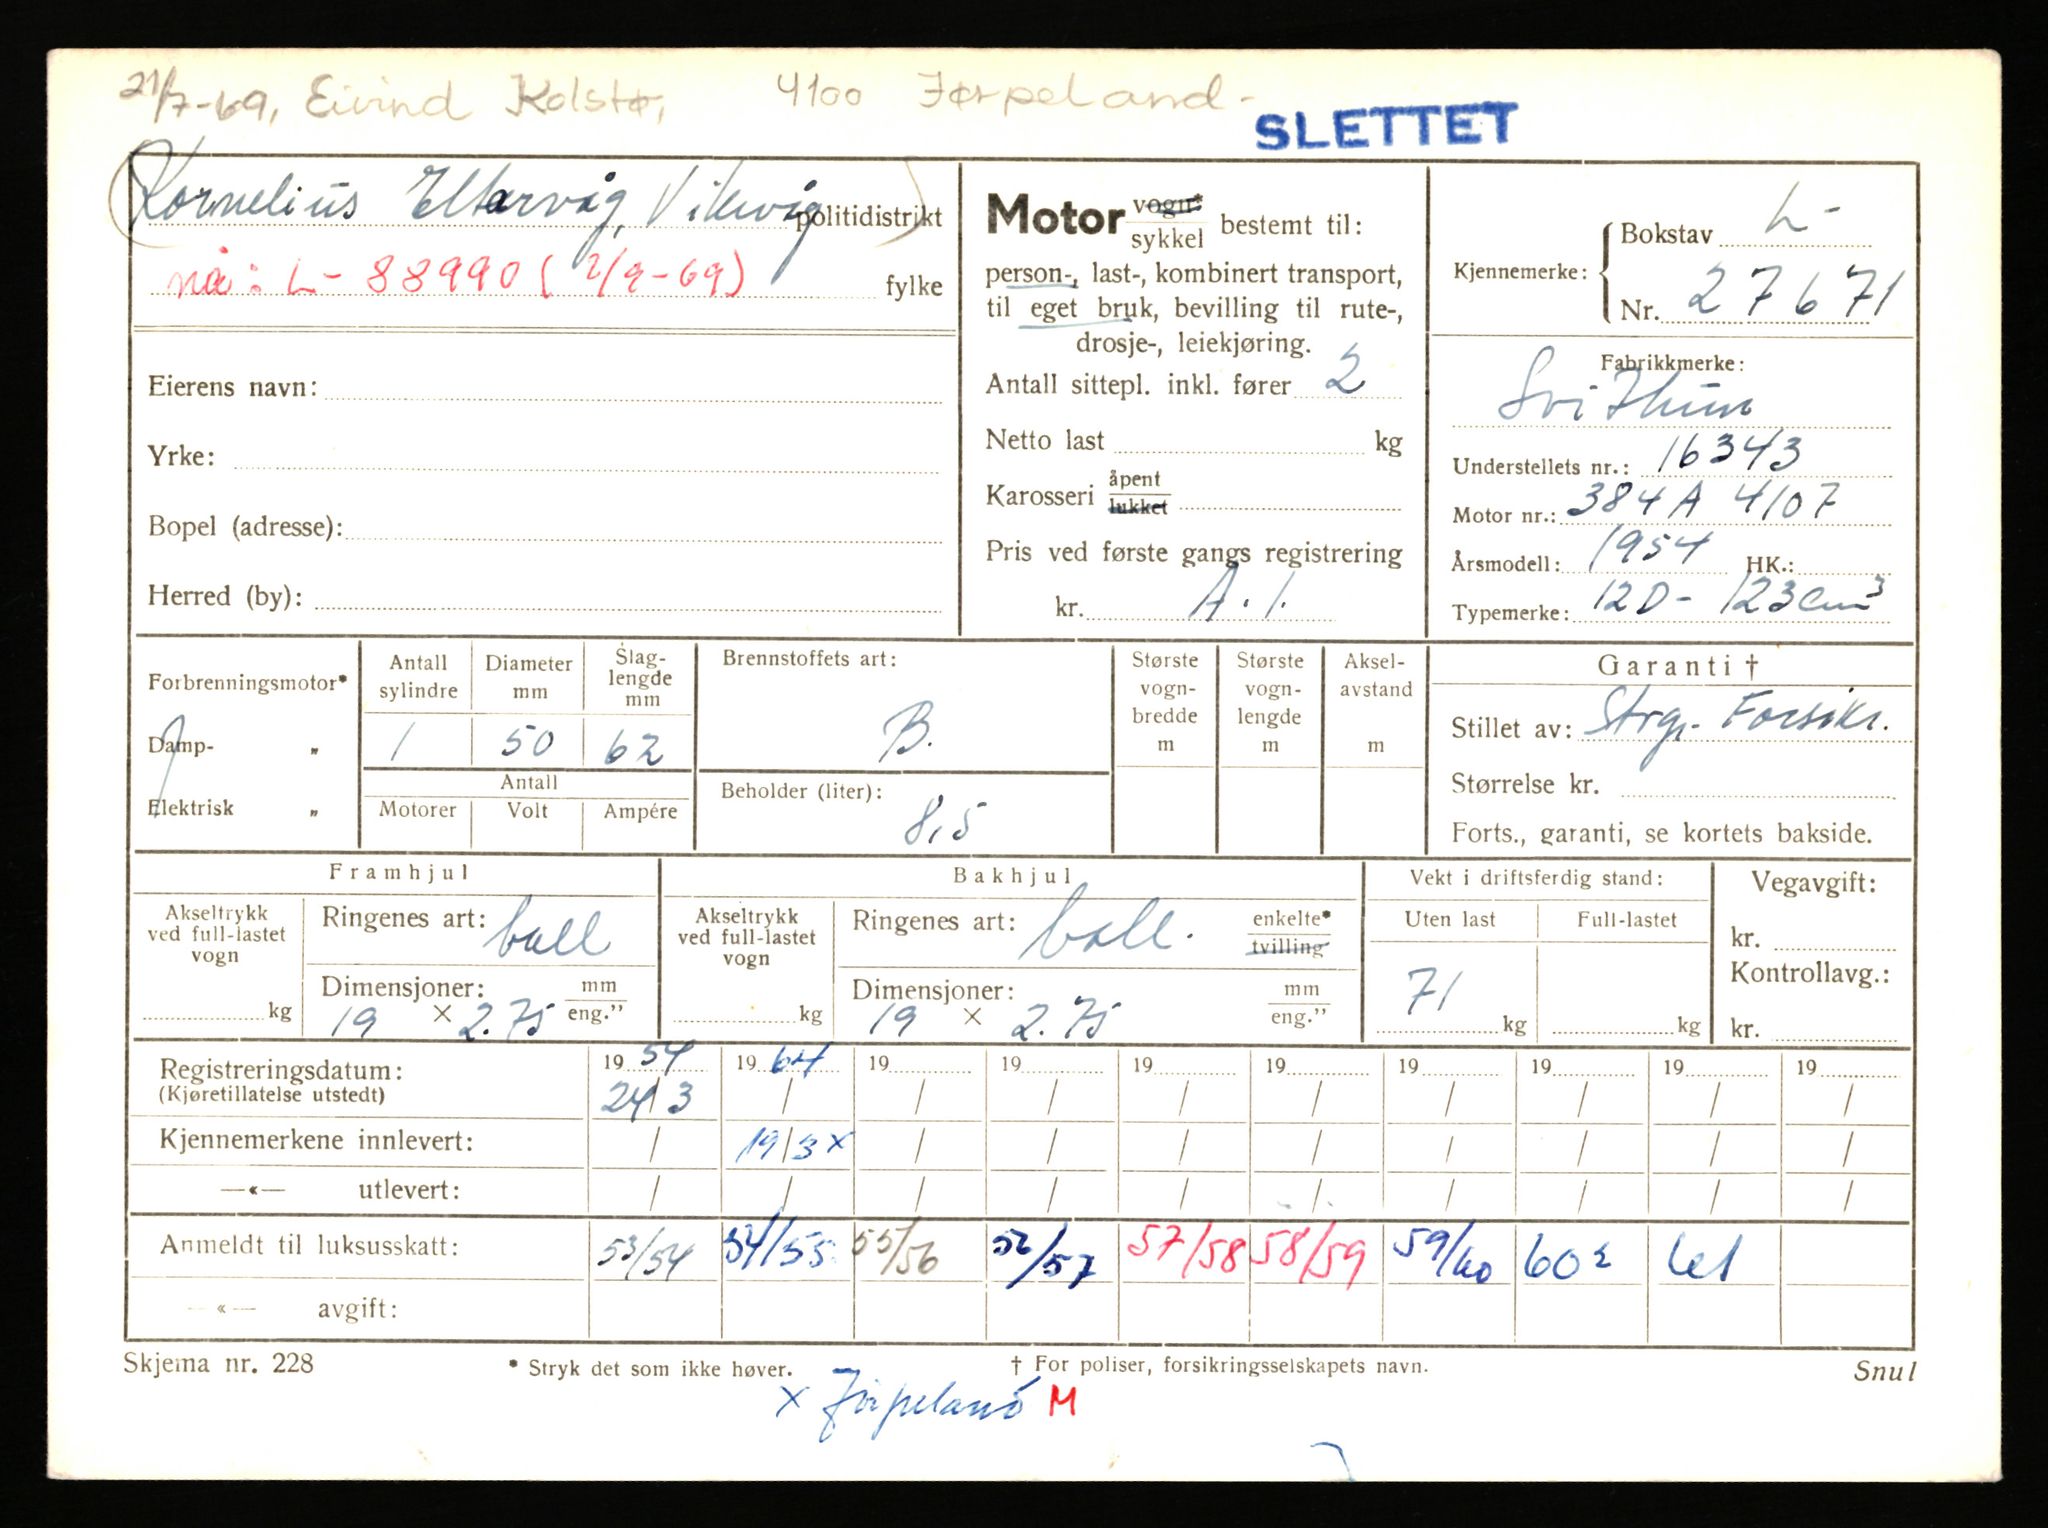 21/7-69, Eivind Kolstø, 4100 Jørpeland -
SLETTET
(Kornelius Eltarvåg, Vikevåg) politidistrikt
nå: L- 88990 (2/9-69) fylke
Eierens navn:
Yrke:
Bopel (adresse):
Herred (by):
Motor vogn* / sykkel bestemt til:
person-, last-, kombinert transport,
til eget bruk, bevilling til rute-,
drosje-, leiekjøring.
Antall sittepl. inkl. fører 2
Netto last kg
Karosseri åpent / lukket
Pris ved første gangs registrering
kr. A.1.
Kjennemerke: Bokstav L-
Nr. 27671
Fabrikkmerke:
Svithun
Understellets nr.: 16343
Motor nr.: 384A 4107
Årsmodell: 1954 HK.:
Typemerke: 12D - 123 cm³
Forbrenningsmotor*
Damp- „
Elektrisk „
Antall sylindre Diameter mm Slag-lengde mm
1 50 62
Antall
Motorer Volt Ampére
Brennstoffets art:
B.
Beholder (liter):
8,5
Største vogn-bredde m
Største vogn-lengde m
Aksel-avstand m
Garanti †
Stillet av: Strg. Forsikr.
Størrelse kr.
Forts., garanti, se kortets bakside.
Framhjul
Akseltrykk ved full-lastet vogn kg
Ringenes art: ball
Dimensjoner: mm / eng.”
19 × 2.75
Bakhjul
Akseltrykk ved full-lastet vogn kg
Ringenes art: ball. enkelte* / tvilling
Dimensjoner: mm / eng.”
19 × 2.75
Vekt i driftsferdig stand:
Uten last Full-lastet
71 kg kg
Vegavgift:
kr.
Kontrollavg.:
kr.
Registreringsdatum: 1954 1964 19 19 19 19 19 19 19 19
(Kjøretillatelse utstedt) 24/3 / / / / / / / / /
Kjennemerkene innlevert: / 19/3 x / / / / / / / /
—«— utlevert: / / / / / / / / / /
Anmeldt til luksusskatt: 53/54 54/55 55/56 56/57 57/58 58/59 59/60 60² 61
—«— avgift:
Skjema nr. 228 * Stryk det som ikke høver. † For poliser, forsikringsselskapets navn. Snul
x Jørpeland M